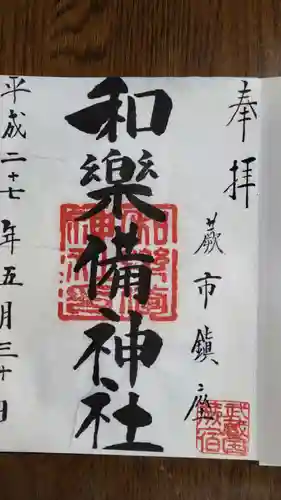 奉拝
蕨市鎮座
和樂備神社
平成二十七年五月三十日
和樂備神社
武蔵国蕨宿